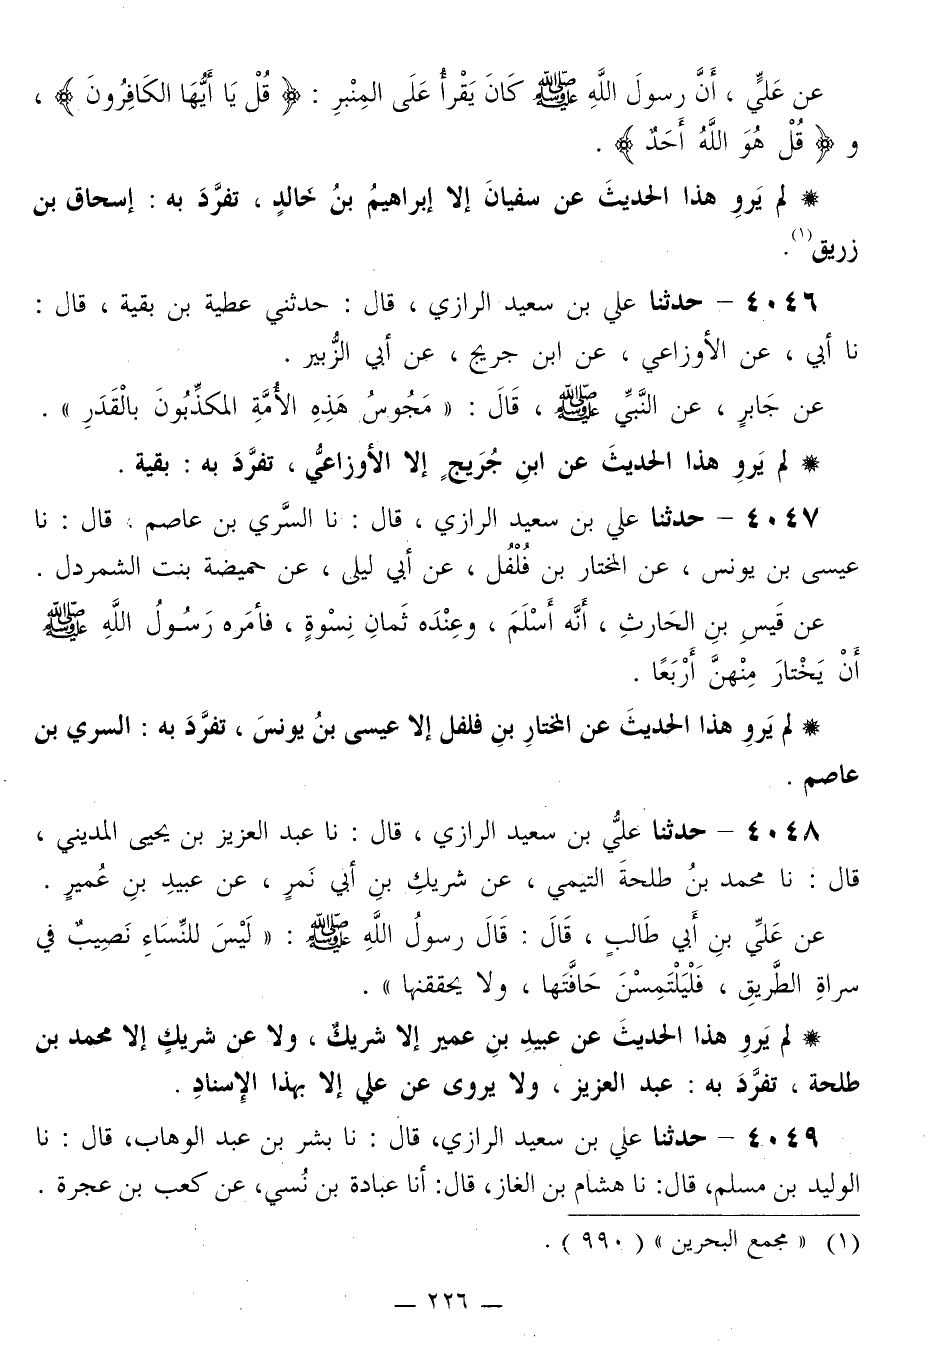 عن عَليٍّ ، أَنَّ رسولَ اللَّهِ ﷺ كَانَ يَقْرأُ عَلَى المِنْبرِ : ﴿ قُلْ يَا أَيُّهَا الكَافِرُونَ ﴾ ،
و ﴿ قُلْ هُوَ اللَّهُ أَحَدٌ ﴾ .
* لم يَروِ هذا الحديثَ عن سفيانَ إلا إبراهيمُ بنُ خالدٍ ، تفرَّدَ به : إسحاق بن
زريق(١).
٤٠٤٦ – حدثنا علي بن سعيد الرازي ، قال : حدثني عطية بن بقية ، قال :
نا أبي ، عن الأوزاعي ، عن ابن جريج ، عن أبي الزُّبير .
عن جَابرٍ ، عن النَّبيِّ ﷺ ، قَالَ : « مَجُوسُ هَذِهِ الأُمَّةِ المكذِّبُونَ بالْقَدَرِ » .
* لم يَروِ هذا الحديثَ عن ابنِ جُرَيجٍ إلا الأوزاعيُّ ، تفرَّدَ به : بقية .
٤٠٤٧ – حدثنا علي بن سعيد الرازي ، قال : نا السَّري بن عاصم ، قال : نا
عيسى بن يونس ، عن المختار بن فُلْفُل ، عن أبي ليلى ، عن حميضة بنت الشمردل .
عن قَيسِ بنِ الحَارثِ ، أَنَّه أَسْلَمَ ، وعِنْدَه ثَمانِ نِسْوةٍ ، فأمَره رَسُولُ اللَّهِ ﷺ
أَنْ يَخْتارَ مِنْهنَّ أَرْبَعًا .
* لم يَروِ هذا الحديثَ عن المختارِ بنِ فلفل إلا عيسى بنُ يونسَ ، تفرَّدَ به : السري بن
عاصم .
٤٠٤٨ – حدثنا عليُّ بن سعيد الرازي ، قال : نا عبد العزيز بن يحيى المديني ،
قال : نا محمد بنُ طلحةَ التيمي ، عن شريكِ بنِ أبي نَمرٍ ، عن عبيدِ بنِ عُميرٍ .
عن عَلِّي بنِ أَبي طَالبٍ ، قَالَ : قَالَ رسولُ اللَّهِ ﷺ : « لَيْسَ للنِّسَاءِ نَصِيبٌ في
سراةِ الطَّريقِ ، فَلْيَلْتَمِسْنَ حَافَّتَها ، ولا يحققنها » .
* لم يَروِ هذا الحديثَ عن عبيدِ بنِ عمير إلا شريكٌ ، ولا عن شريكٍ إلا محمد بن
طلحة ، تفرَّدَ به : عبد العزيز ، ولا يروى عن علي إلا بهذا الإسنادِ .
٤٠٤٩ – حدثنا علي بن سعيد الرازي، قال : نا بشر بن عبد الوهاب، قال : نا
الوليد بن مسلم، قال: نا هشام بن الغاز، قال: أنا عبادة بن نُسي، عن كعب بن عجرة .
(١) « مجمع البحرين » ( ٩٩٠ ) .
— ٢٢٦ —